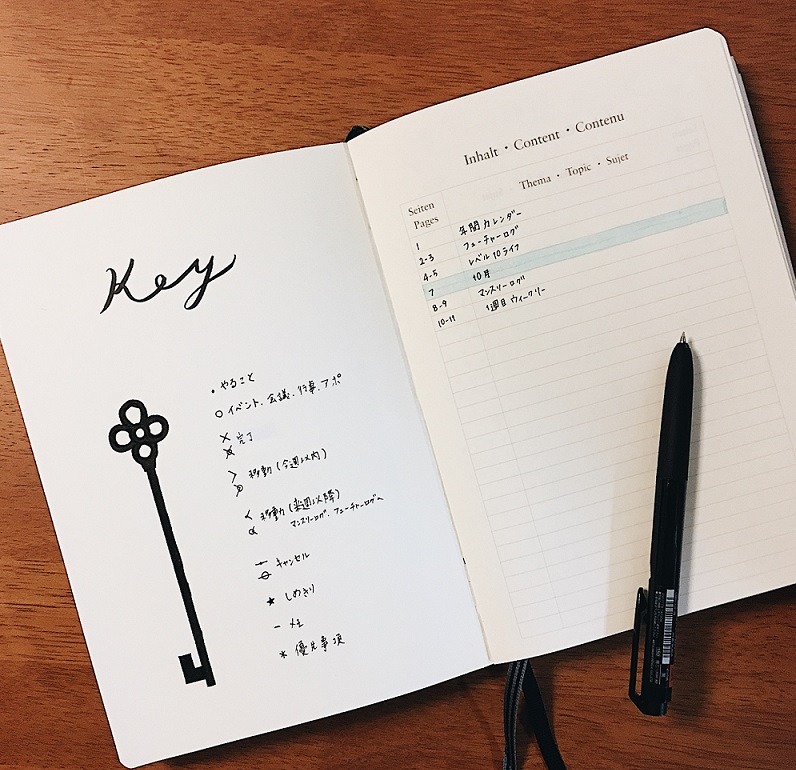 Key
• やること
○ イベント、会議、行事、アポ
× 完了
> 移動(今週以内)
< 移動(来週以降)
マンスリーログ、フューチャーログへ
キャンセル
★ しめきり
− メモ
* 優先事項
Inhalt · Content · Contenu
Seiten Thema · Topic · Sujet
Pages
1 年間カレンダー
2-3 フューチャーログ
4-5 レベル10ライフ
7 10月
8-9 マンスリーログ
10-11 1週目ウィークリー